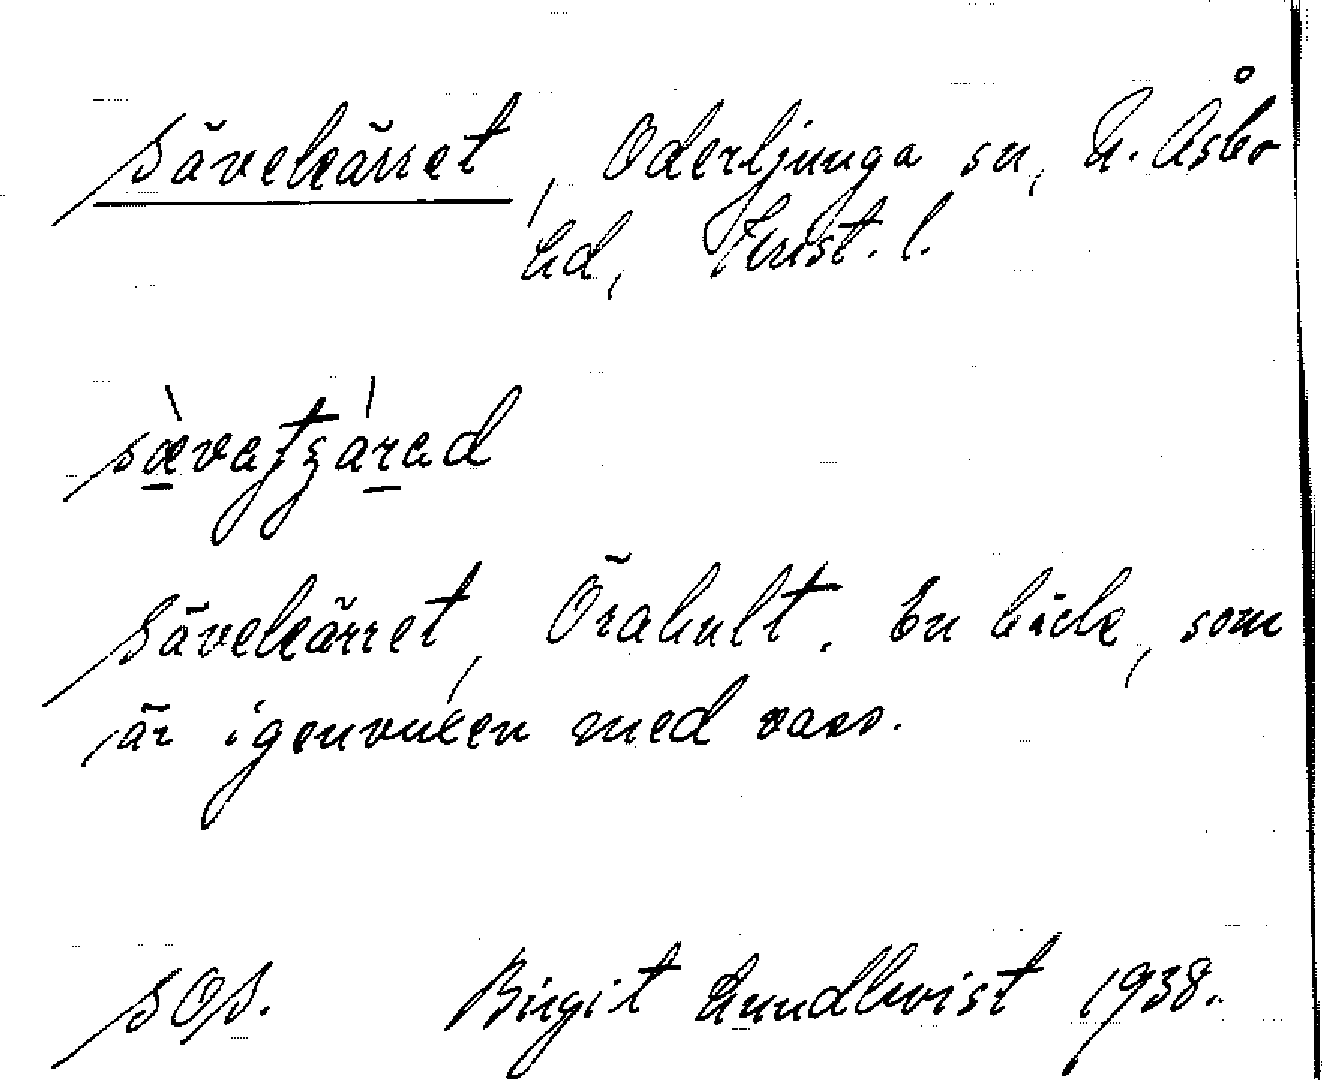 Sävekärret, Oderljunga sn, N. Åsbo
hd, Krist. l.
sävekärret, Örahult. En bäck, som
är igenvuxen med vass.
SOS. Birgit Lundkvist 1938.